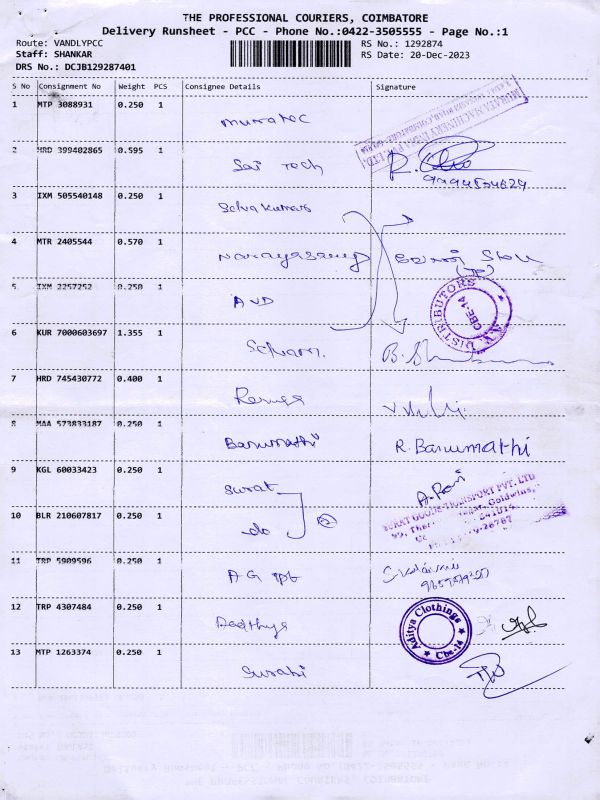 THE PROFESSIONAL COURIERS, COIMBATORE
Delivery Runsheet - PCC - Phone No.:0422-3505555 - Page No.:1
Route: VANDLYPCC RS No.: 1292874
Staff: SHANKAR RS Date: 20-Dec-2023
DRS No.: DCJB129287401
S No Consignment No Weight PCS Consignee Details Signature
1 MTP 3088931 0.250 1 muratec
2 HRD 399402865 0.595 1 Sai Tech
3 IXM 505540148 0.250 1 Selvakumar
4 MTR 2405544 0.570 1
5 IXM 2257252 0.250 1 AVD
A.V. DISTRIBUTORS CBE-14
6 KUR 7000603697 1.355 1 Selvam.
7 HRD 745430772 0.400 1 Ramesh
8 MAA 573833187 0.250 1 Banumathi R. Banumathi
9 KGL 60033423 0.250 1 Surat
SURAT GOODS TRANSPORT PVT. LTD
10 BLR 210607817 0.250 1 do
11 TRP 5909596 0.250 1 AG
12 TRP 4307484 0.250 1 Aadhya
Aditya Clothings Cbe-14
13 MTP 1263374 0.250 1 Surabi